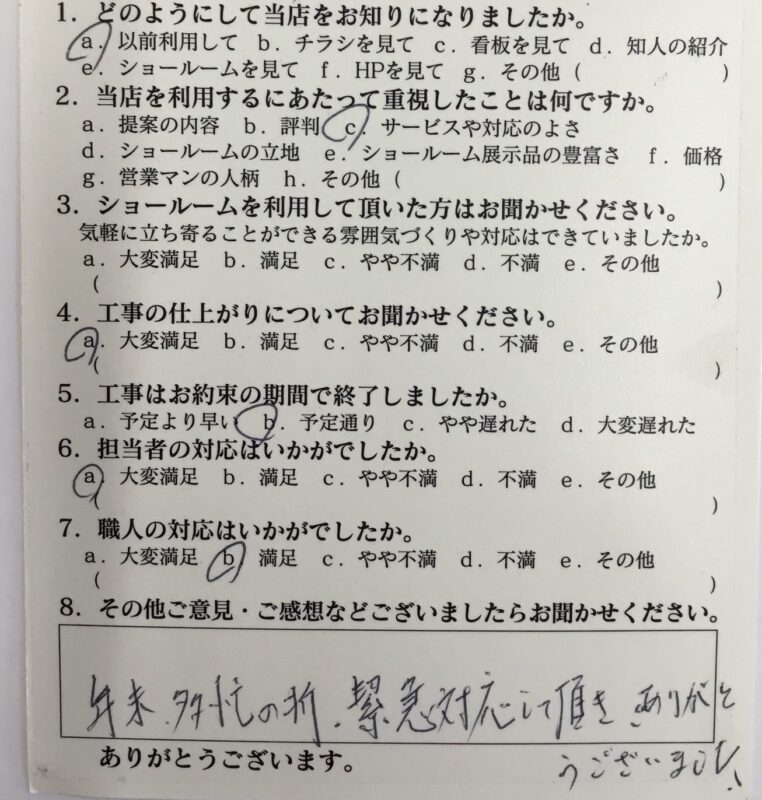 1．どのようにして当店をお知りになりましたか。
a．以前利用して b．チラシを見て c．看板を見て d．知人の紹介
e．ショールームを見て f．HPを見て g．その他（ ）
2．当店を利用するにあたって重視したことは何ですか。
a．提案の内容 b．評判 c．サービスや対応のよさ
d．ショールームの立地 e．ショールーム展示品の豊富さ f．価格
g．営業マンの人柄 h．その他（ ）
3．ショールームを利用して頂いた方はお聞かせください。
気軽に立ち寄ることができる雰囲気づくりや対応はできていましたか。
a．大変満足 b．満足 c．やや不満 d．不満 e．その他
（ ）
4．工事の仕上がりについてお聞かせください。
a．大変満足 b．満足 c．やや不満 d．不満 e．その他
（ ）
5．工事はお約束の期間で終了しましたか。
a．予定より早い b．予定通り c．やや遅れた d．大変遅れた
6．担当者の対応はいかがでしたか。
a．大変満足 b．満足 c．やや不満 d．不満 e．その他
（ ）
7．職人の対応はいかがでしたか。
a．大変満足 b．満足 c．やや不満 d．不満 e．その他
（ ）
8．その他ご意見・ご感想などございましたらお聞かせください。
年末、多忙の折、緊急対応して頂き、ありがと
うございました。
ありがとうございます。